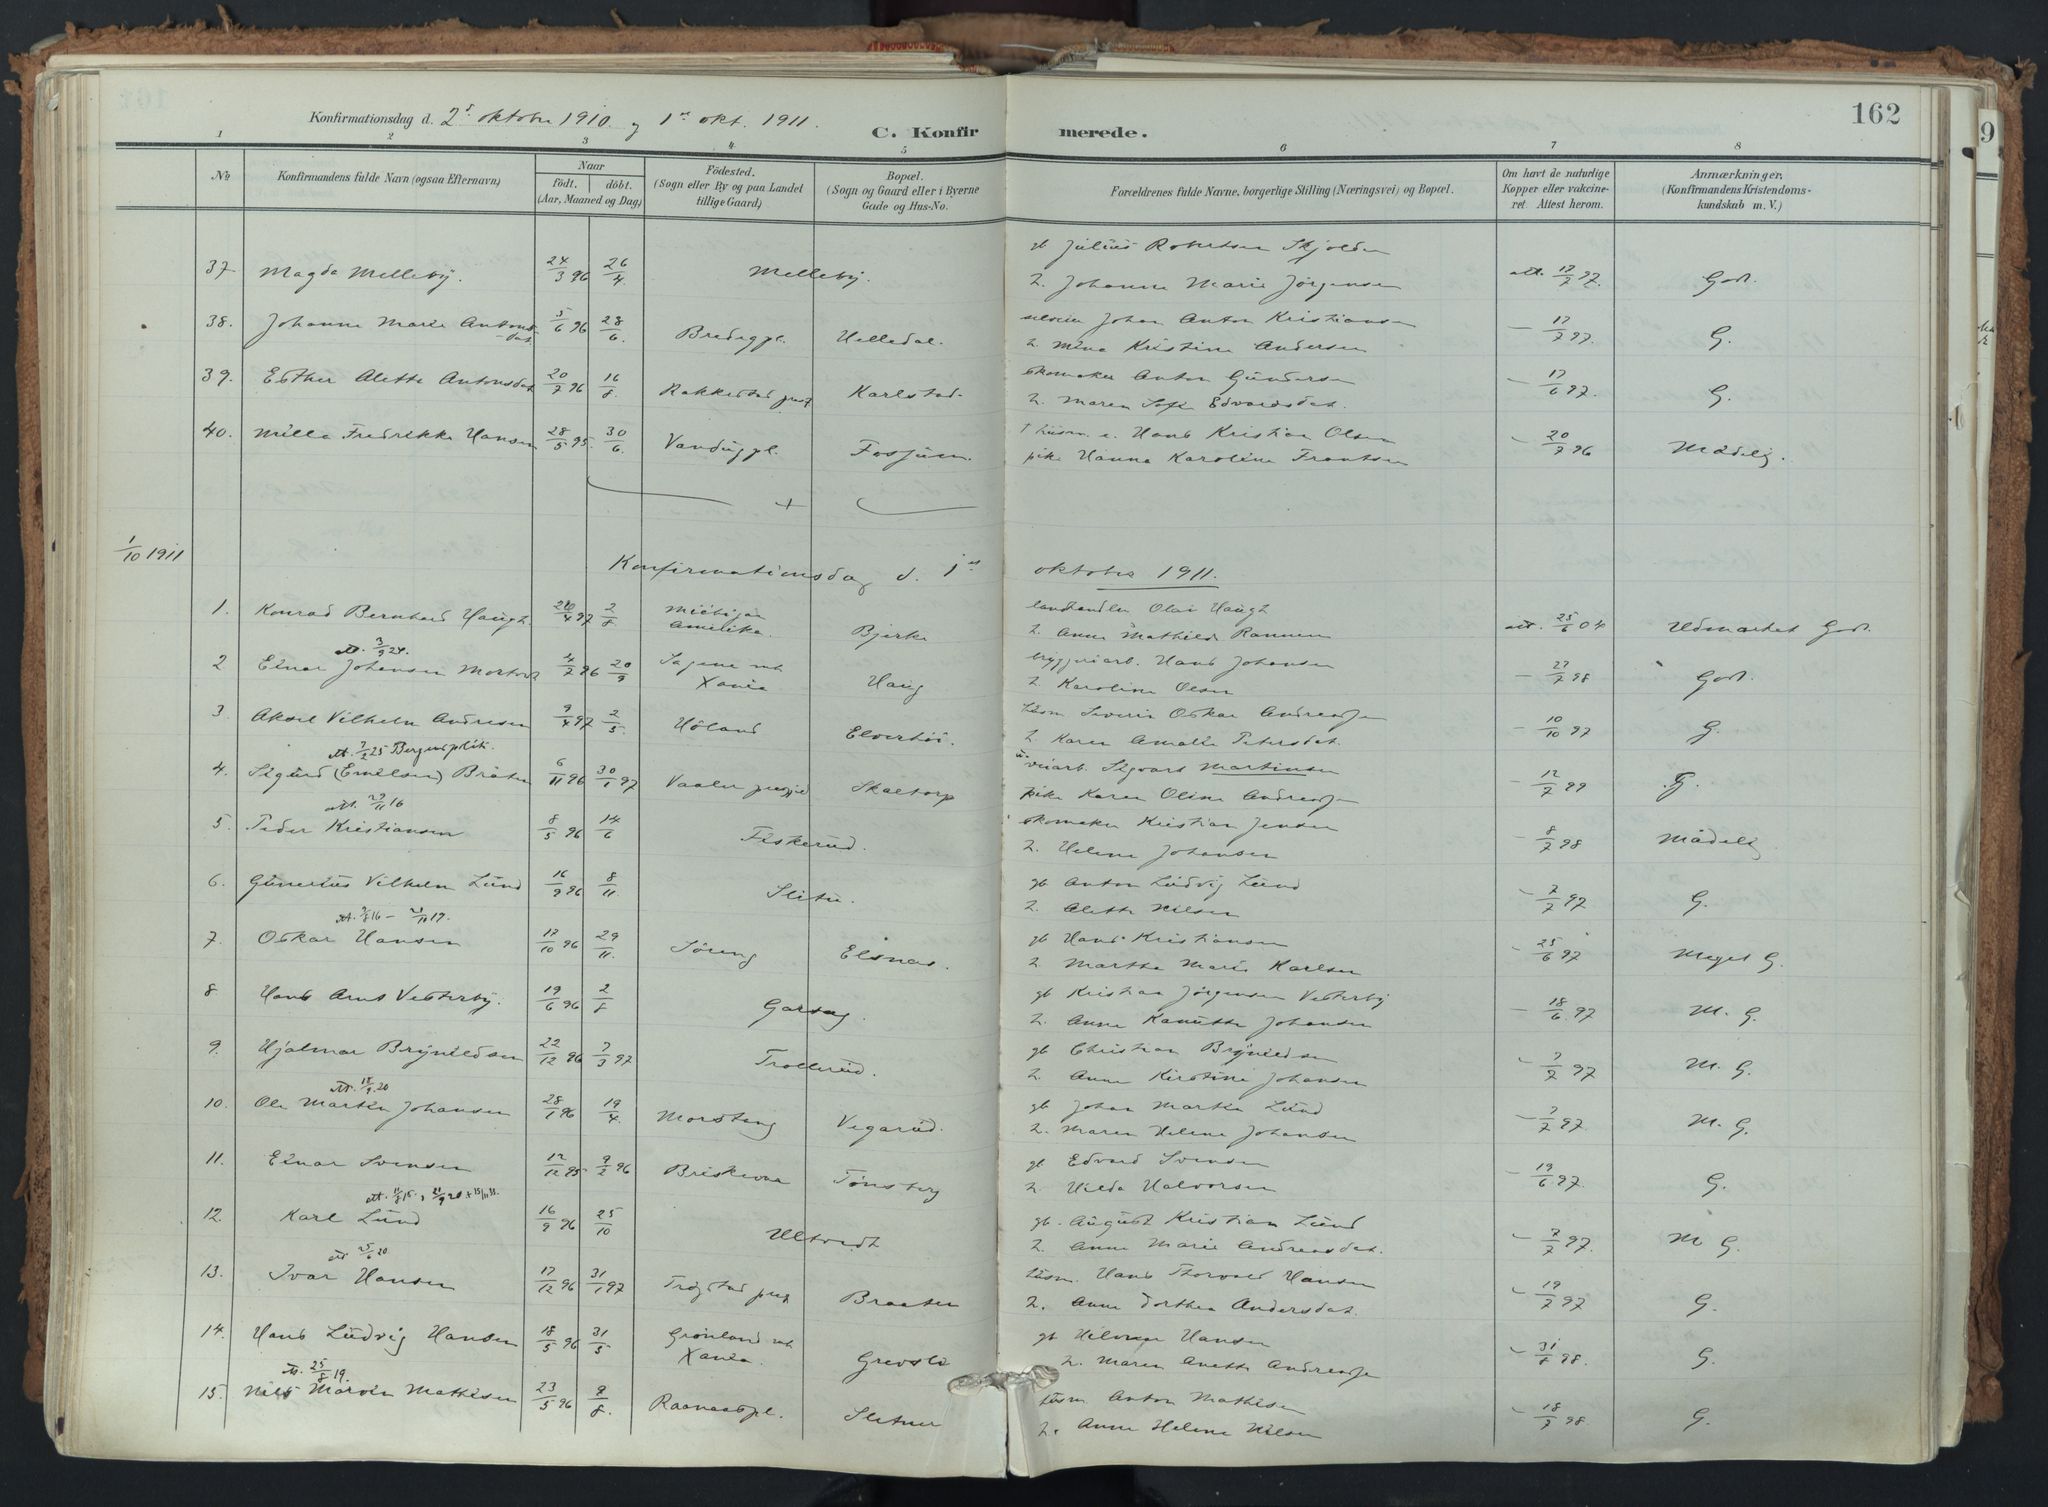 162
Konfirmationsdag d. 2 oktober 1910 og 1st okt. 1911.
C. Konfirmerede.
1 2 3 4 5 6 7 8
No
Konfirmandens fulde Navn (ogsaa Efternavn)
Naar
födt. döbt.
(Aar, Maaned og Dag)
Födested.
(Sogn eller By og paa Landet
tillige Gaard)
Bopæl.
(Sogn og Gaard eller i Byerne
Gade og Hus-No.
Forældrenes fulde Navne, borgerlige Stilling (Næringsvei) og Bopæl.
Om havt de naturlige
Kopper eller vakcine-
ret. Attest herom.
Anmærkninger.
(Konfirmandens Kristendoms-
kundskab m. V.)
gb Julius Robertsen Skjolden
37. Magda Melleby. 24/3 96 26/4 Melleby. 2. Johanne Marie Jørgensen att. 17/7 97. Godt.
38. Johanne Marie Antons- 5/6 96 28/6 Bredegpl. Helledal. Johan Anton Kristiansen – 17/7 97. G.
dat. 2. Mina Kristine Andersen
39. Esther Alette Antonsdat 20/7 96 16/8. Rakkestad præg Karlstad skomaker Anton Gundersen – 17/6 97. G.
2. Maren Sofie Edvardsdat.
40. Milla Fredrikke Hansen 28/5 95. 30/6. Fosjum. † husm. e. Hans Kristian Olsen – 20/7 96 Mådelig.
pike Hanna Karoline Frantsen
1/10 1911
Konfirmationsdag d. 1st oktober 1911.
1. Konrad Bernhard Haugh. 26/4 97 2/8 Michigan landhandler Olai Haugh
Amerika. Bjerke 2. Anne Mathilde Rannem att. 25/6 04 Udmærket Godt.
att. 3/9 24.
2 Einar Johansen Mortvedt 4/7 96 20/9 Sagene mt bryggeriarb. Hans Johansen – 27/7 98 Godt.
Xania Haug 2. Karoline Olsen
3 Aksel Vilhelm Andresen 9/4 97 2/5 Höland Elvestøi. husm Severin Oskar Andreassen – 10/10 97 G.
2. Karen Amalie Petersdat.
att. 7/2 25 Bergens politi.
4. Sigurd (Emilsen) Bråten 6/11 96 30/1 97 Vaaler præggj Skaltorp veiarb. Sigvart Martinsen – 12/7 99 G.
pike Karen Oline Andreassen
att. 29/11 16
5. Peder Kristiansen 8/5 96 14/6 Fiskerud. skomaker Kristian Jensen – 8/7 98 Mådelig
2. Helene Johansen
6. Gunerius Vilhelm Lund 16/9 96 8/11 Slitu. gb Anton Ludvig Lund – 7/7 97 G.
2. Alette Nilsen
7. Oskar Hansen 17/10 96 29/11. Söreng Elsnas. gb Hans Kristiansen – 25/6 97 Meget G.
2 Marthe Marie Karlsen
8 Hans Arnt Vesterby. 19/6 96 2/8 Garseg. gb Kristian Jørgensen Vesterby – 18/6 97 M. G.
2. Anne Kanutte Johansen
9. Hjalmar Brynildsen 22/12 96 7/3 97 Trollerud. gb Christian Brynildsen – 7/7 97 M. G.
2. Anne Kirstine Johansen
att. 18/9 20
10. Ole Martin Johansen 28/1 96 19/4 Morsteng Vegarud. gb Johan Martin Lund – 7/7 97. M. G.
2. Maren Helene Johansen
11. Einar Svensen 12/12 95 9/2 96 Briskevaa Tønsberg gb Edvard Svensen – 19/6 97. G.
2 Hilda Halvorsen
12. Karl Lund 16/9 96 25/10 Ultvedt gb. August Kristian Lund – 7/7 97. M G.
2. Anne Marie Andreasdat.
att 25/6 20
13. Ivar Hansen 17/12 96 31/1 97 Trøgstad præg Braaten husm. Hans Thorvald Hansen – 19/7 97 G.
2. Anne Dorthea Andersdat.
14. Hans Ludvig Hansen 18/5 96 31/5 Grønland mt gb Hilmar Hansen – 31/8 98. G.
Xania. Grevsli 2. Maren Anette Andreassen
att. 25/8 19.
15. Nils Marvin Mathisen 23/5 96 9/8. Raanaaspl. Slitner husm Anton Mathisen – 18/7 98. G.
2. Anne Helene Nilsen